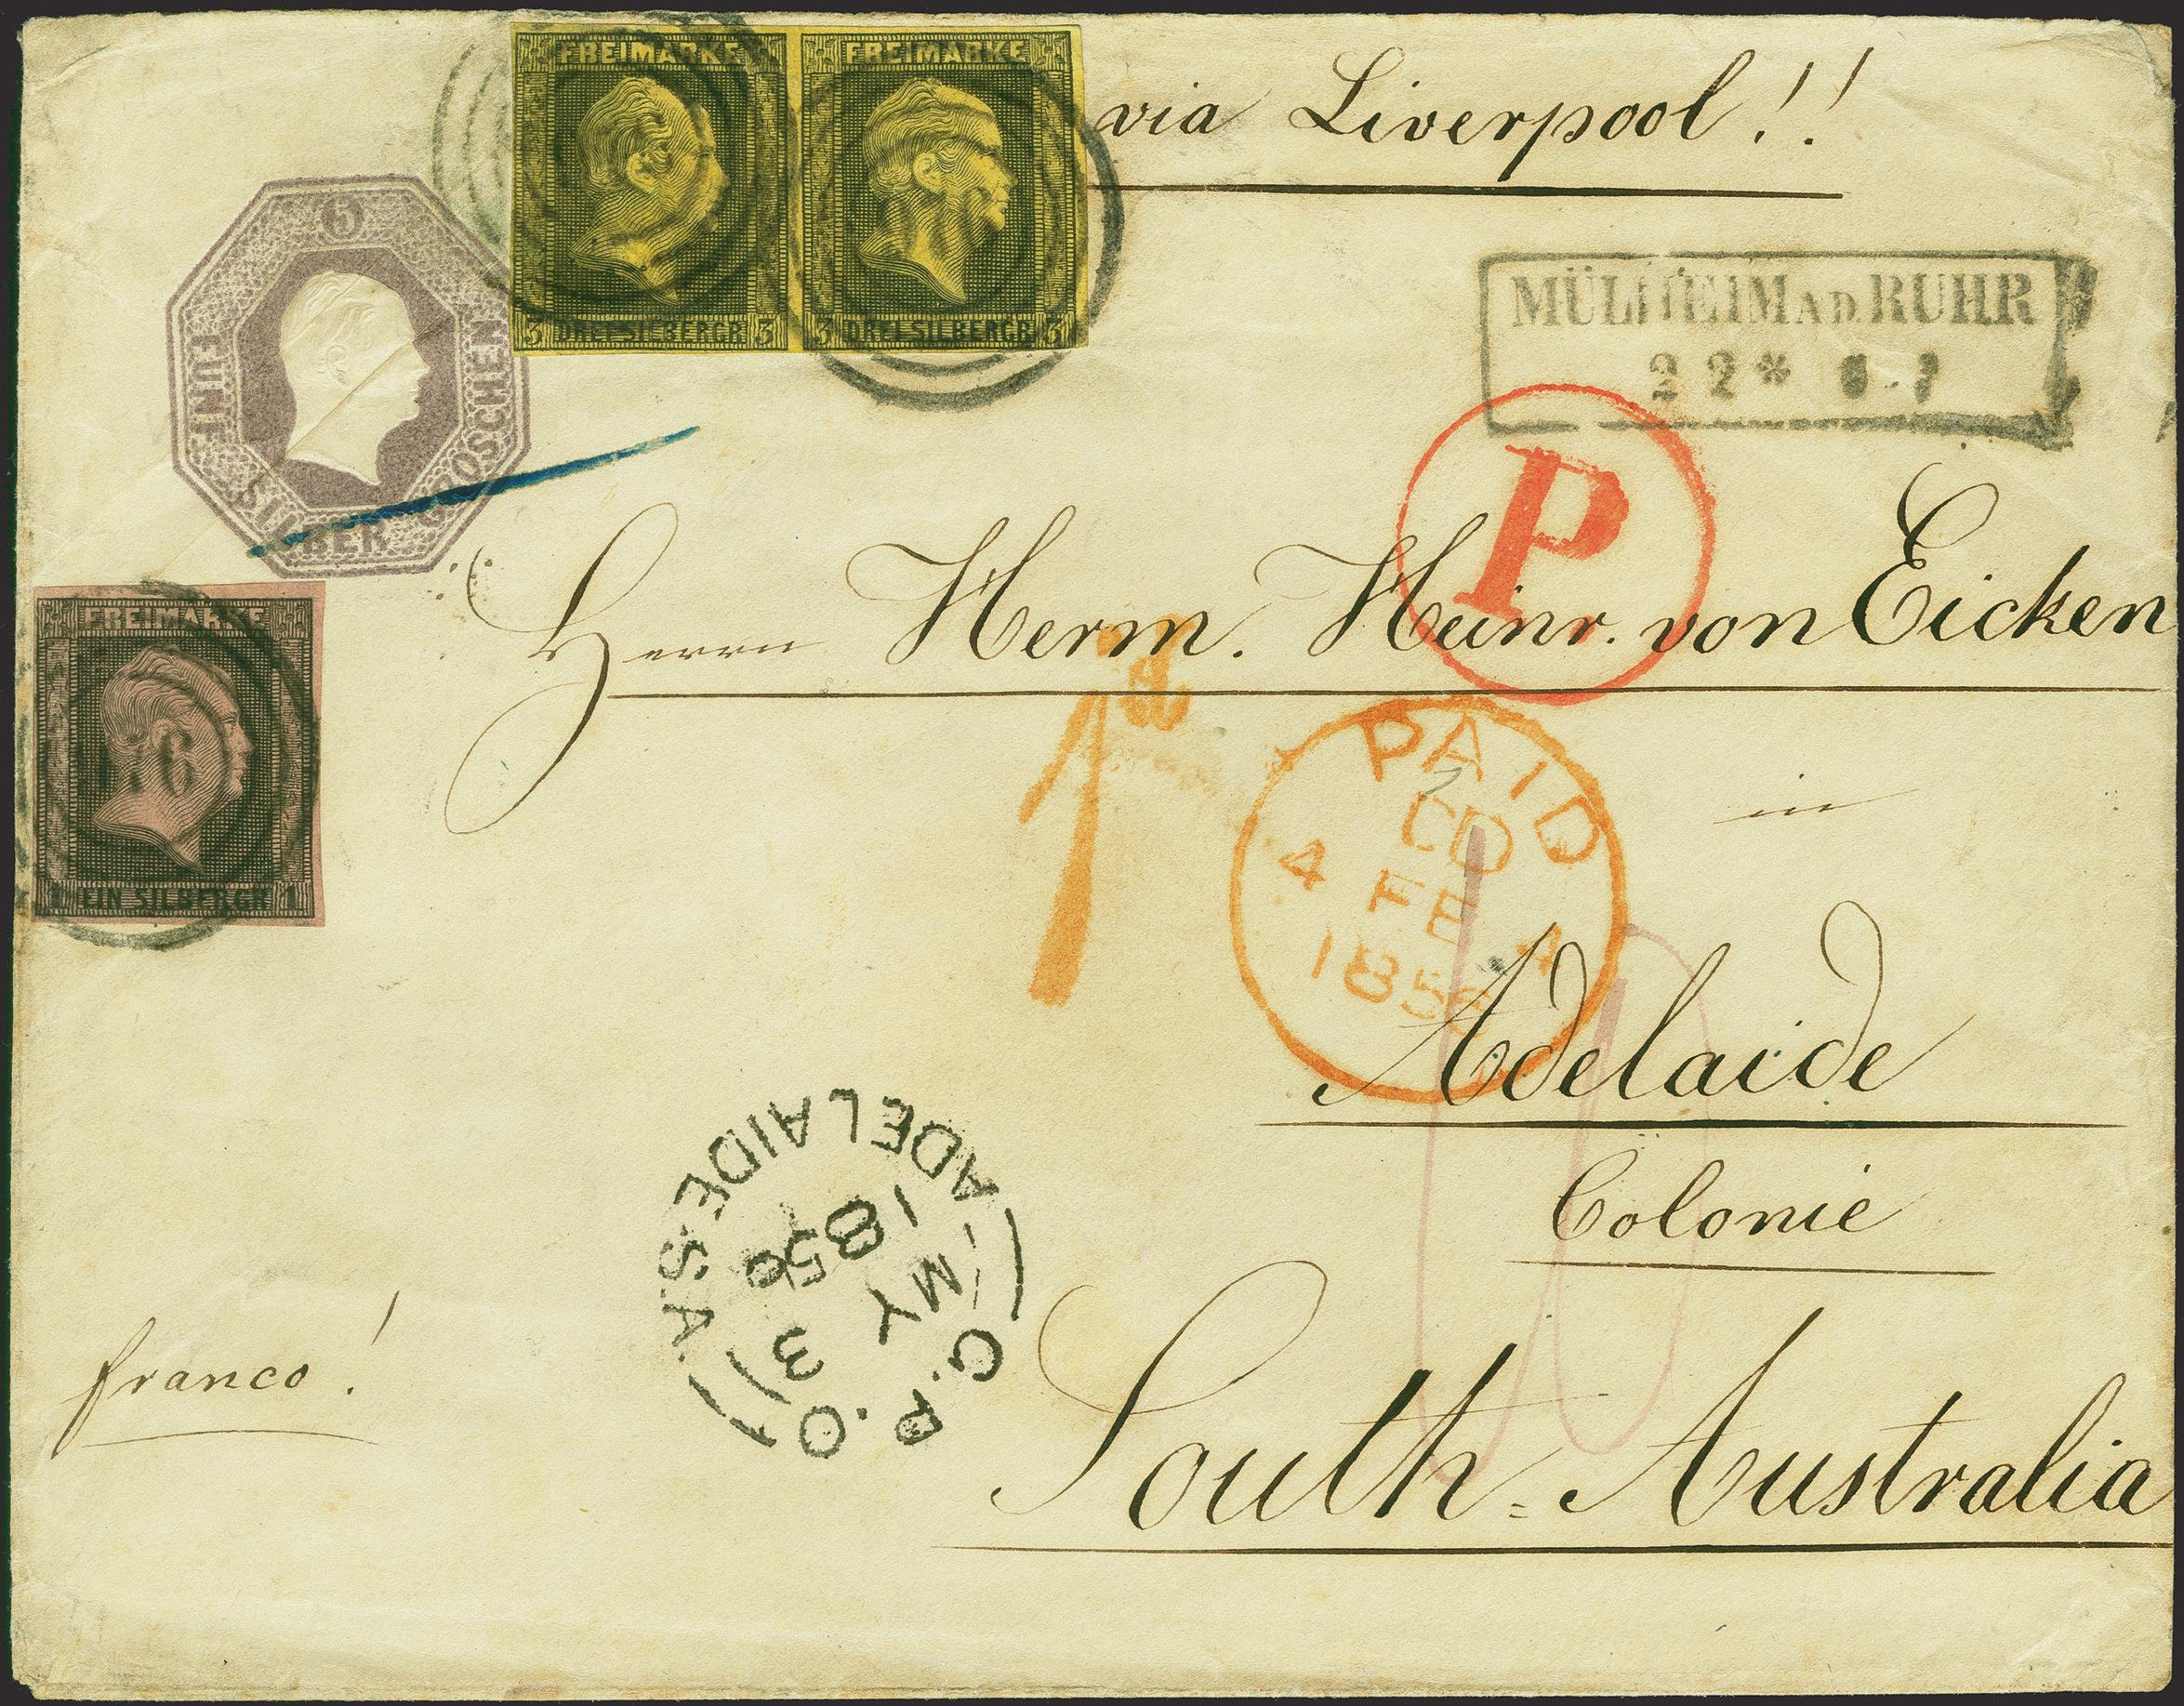 FREIMARKE FREIMARKE
3 DREI SILBERGR. 3 3 DREI SILBERGR. 3
via Liverpool!!
5
FÜNF SILBER GROSCHEN
MÜLHEIM AD. RUHR
22 *
P
Herrn Herm. Heinr. von Eicken
FREIMARKE
1 EIN SILBERGR. 1
1d
PAID
CD
4 FE 4
185
in
Adelaide
Colonie
South-Australia
G.P.O.
MY 3
185
ADELAIDE.S.A.
franco!